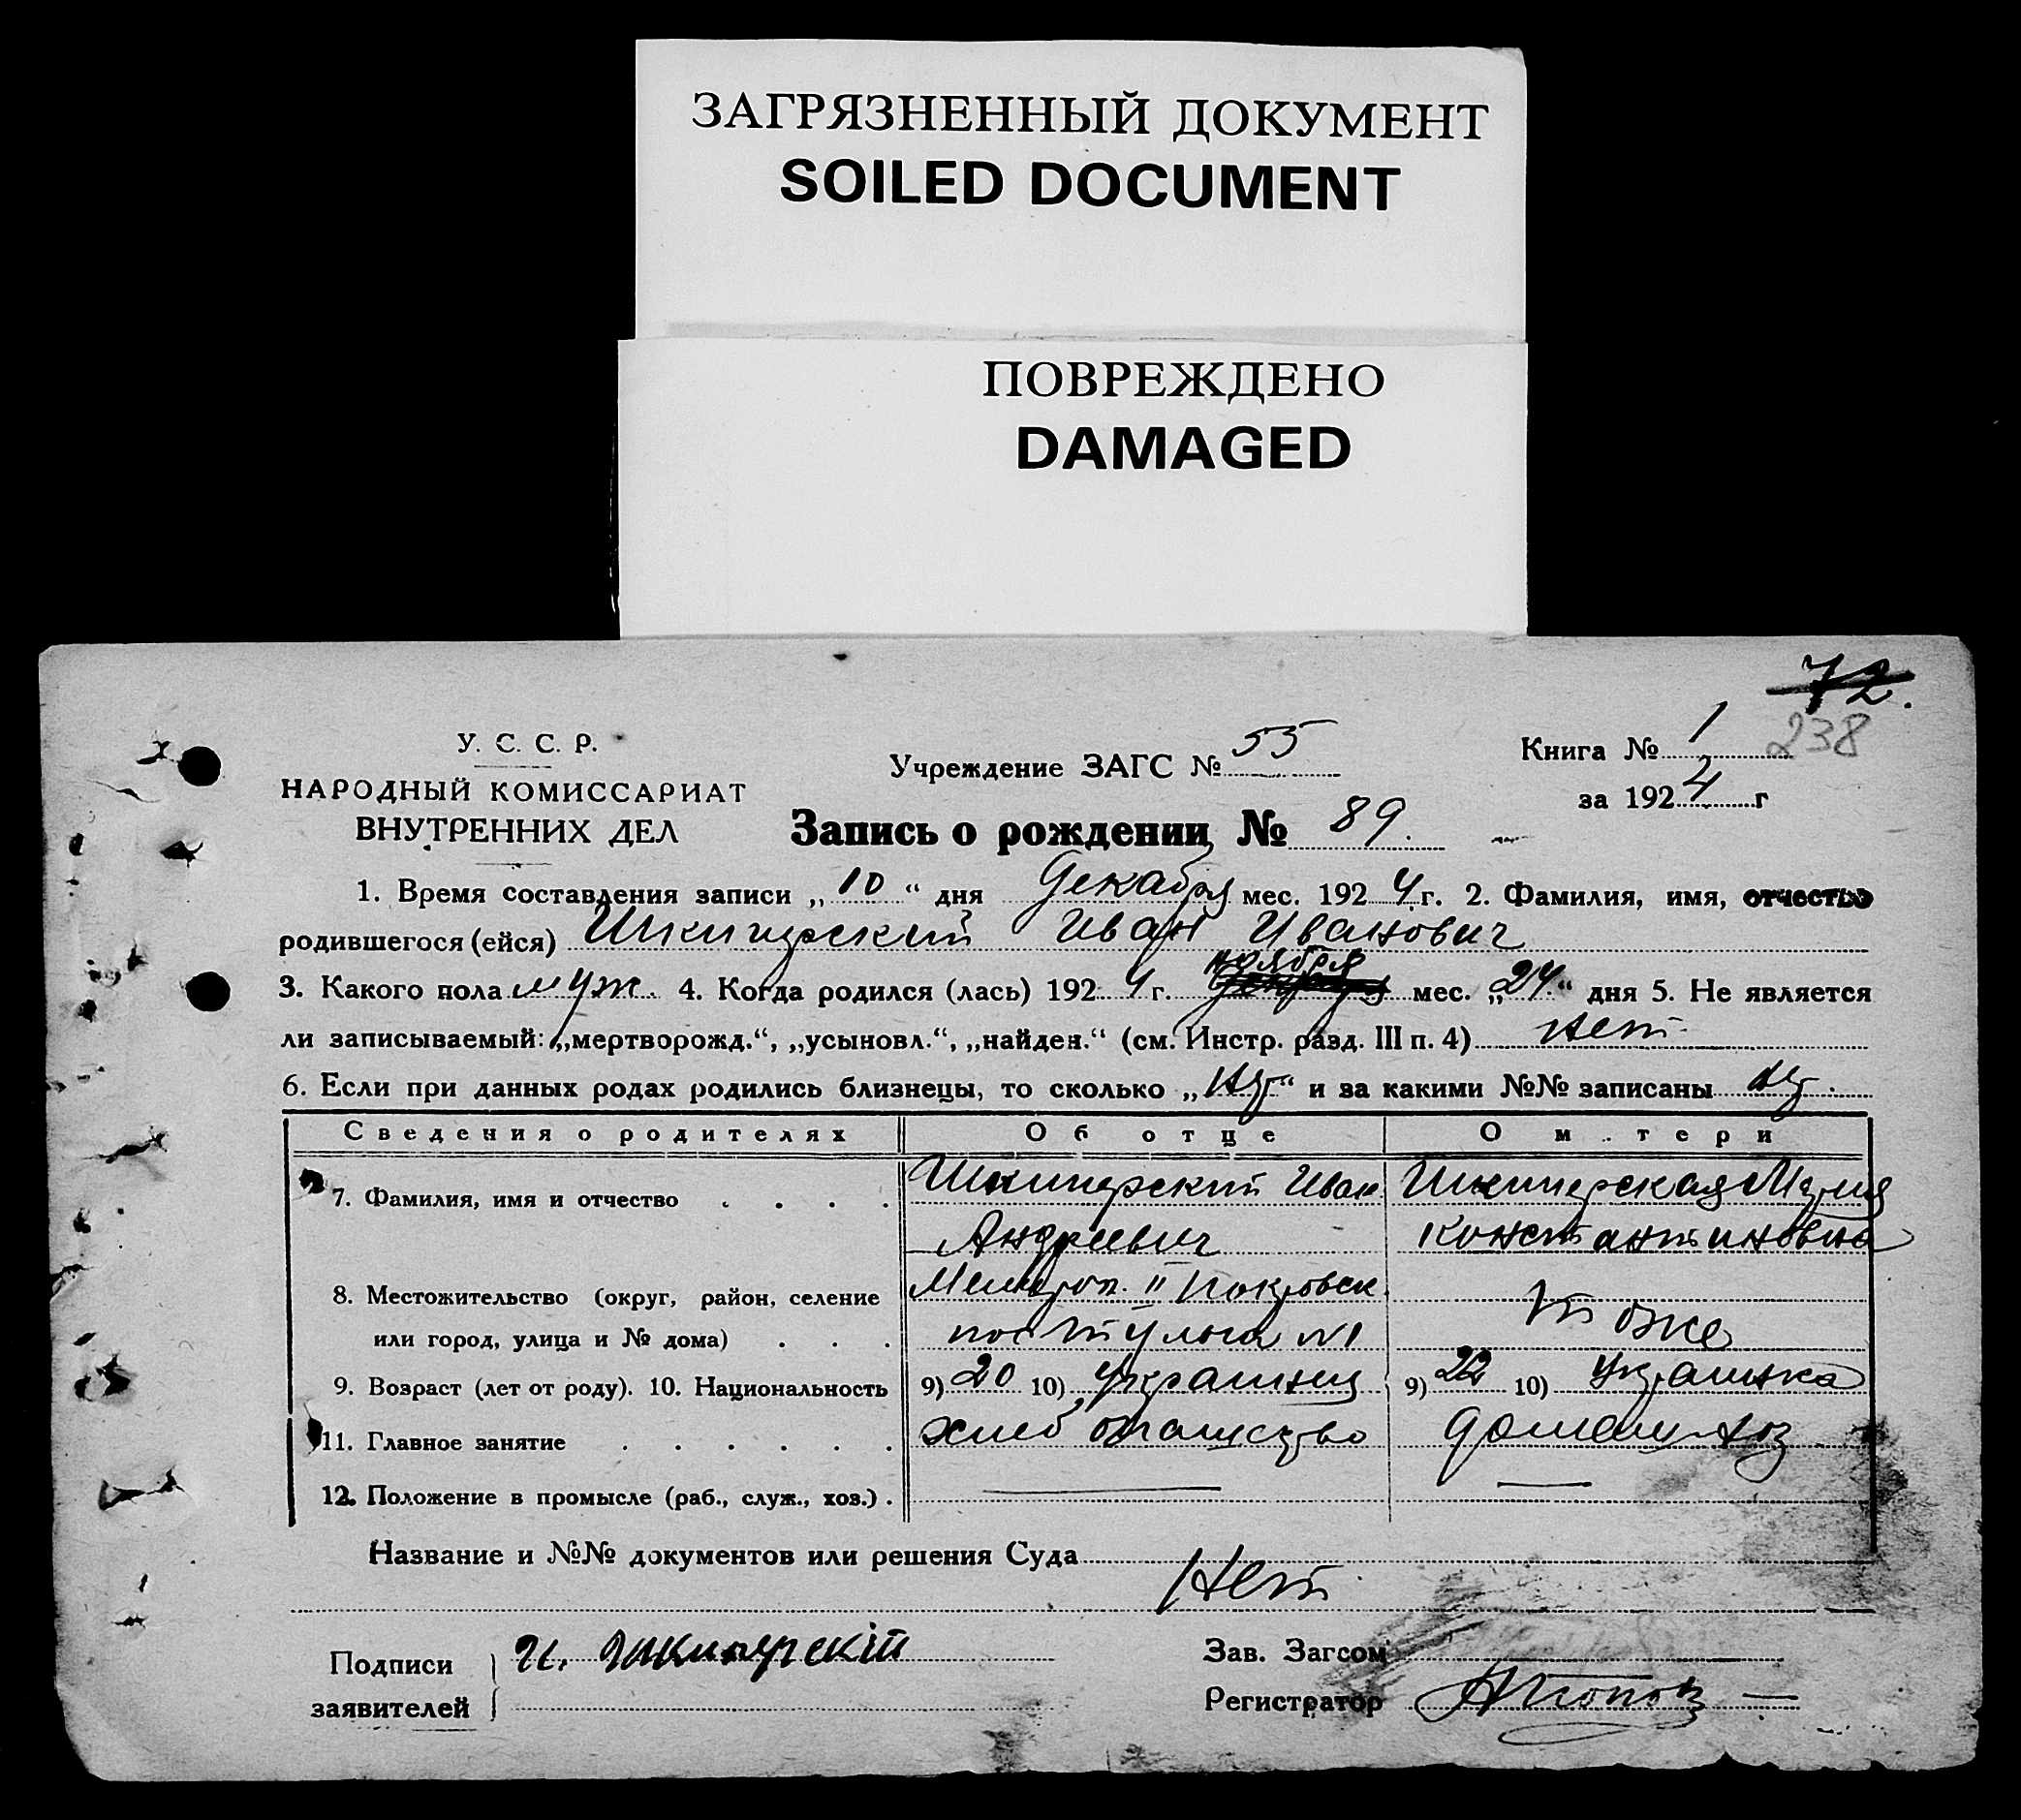 ЗАГРЯЗНЕННЫЙ ДОКУМЕНТ
SOILED DOCUMENT
ПОВРЕЖДЕНО
DAMAGED
72.
238
У. С. С. Р.
НАРОДНЫЙ КОМИССАРИАТ
ВНУТРЕННИХ ДЕЛ
Учреждение ЗАГС № 55
Книга № 1
за 1924 г
Запись о рождении № 89.
1. Время составления записи „10“ дня Декабря мес. 1924 г. 2. Фамилия, имя, отчество
родившегося (ейся) Шкипурский Иван Иванович
3. Какого пола муж. 4. Когда родился (лась) 1924 г. ноября мес. „24“ дня 5. Не является
ли записываемый: „мертворожд.“, „усыновл.“, „найден.“ (см. Инстр. разд. III п. 4) нет
6. Если при данных родах родились близнецы, то сколько „ “ и за какими №№ записаны
Сведения о родителях Об отце О м. тери
7. Фамилия, имя и отчество Иван Мария
Андреевич Константиновна
8. Местожительство (округ, район, селение II Покровск.
или город, улица и № дома) №1 тоже
9. Возраст (лет от роду). 10. Национальность 9) 20 10) Украинец 9) 22 10) Украинка
11. Главное занятие хлебопашество домашн хоз
12. Положение в промысле (раб., служ., хоз.) .
Название и №№ документов или решения Суда
Нет
Подписи И.
заявителей
Зав. Загсом
Регистратор АПопов